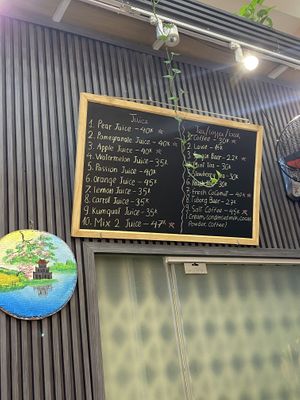 Juice
1. Pear Juice - 40k
2. Pomegranate Juice - 40k
3. Apple Juice - 40k
4. Watermelon Juice - 35k
5. Passion Juice - 40k
6. Orange Juice - 45k
7. Lemon Juice - 35k
8. Carrot Juice - 35k
9. Kumquat Juice - 35k
10. Mix 2 Juice - 47k
Tea/Coffee/
1. Coffee - 30k
2. 
3. Beer - 22k
Tea - 30k
7. Fresh Coconut - 40k
8. Tuborg Beer - 27k
9. Salt Coffee - 45k
(Cream, condensed milk, cacao
Powder, coffee)